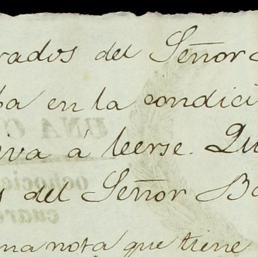 vados del Señor
en la condici
va á leerse. Qu
s del Señor Ba
una nota que tiene